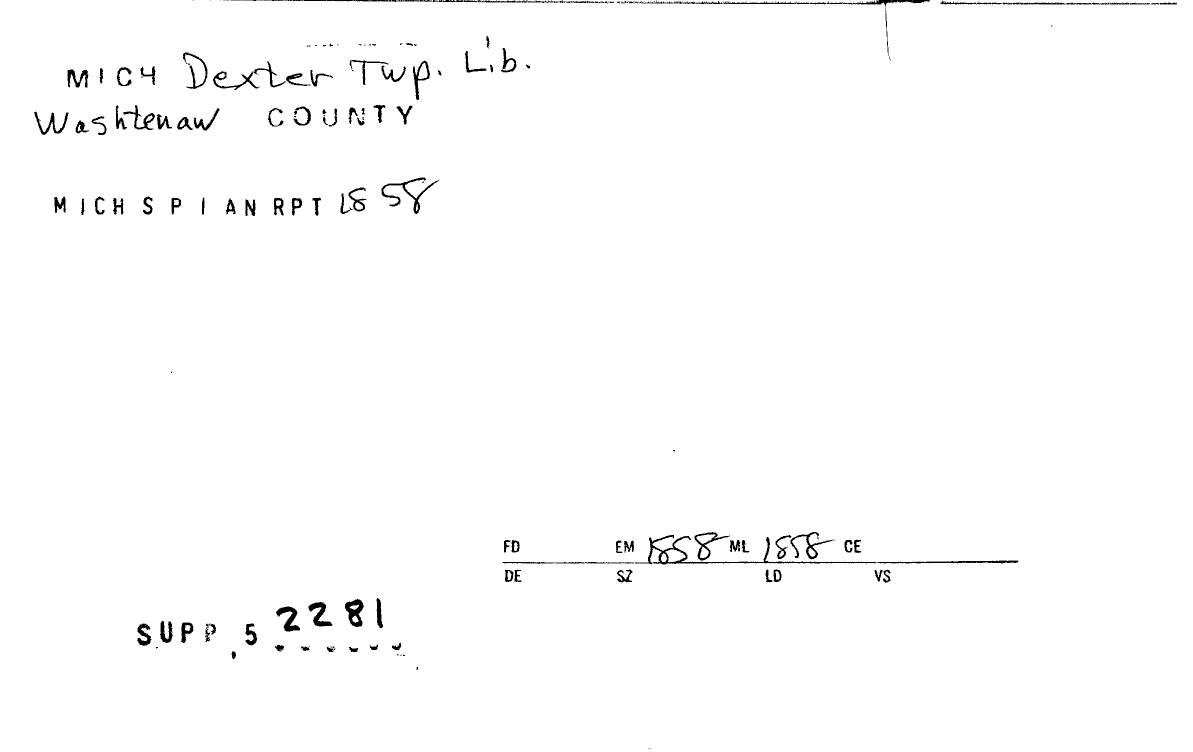 MICH Dexter Twp. Lib.
Washtenaw COUNTY
MICH S P I AN RPT 1858
FD EM 1858 ML 1858 CE
DE SZ LD VS
SUPP.5 2281